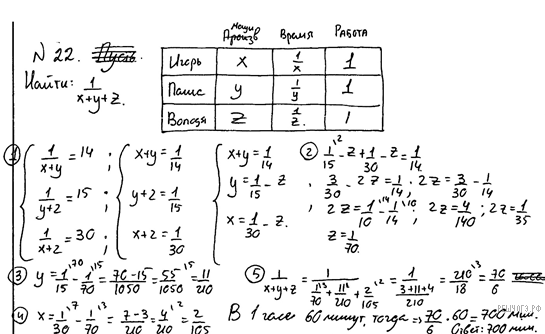 N 22.
Найти: 1/(x+y+z).
Время Работа
Игорь x 1/x 1
Паша y 1/y 1
Володя z 1/z 1
① 1/(x+y) = 14 ; x+y = 1/14 x+y = 1/14
1/(y+z) = 15 ; y+z = 1/15 y = 1/15 - z
1/(x+z) = 30 ; x+z = 1/30 x = 1/30 - z.
② 1/15 - z + 1/30 - z = 1/14
; 3/30 - 2z = 1/14 ; 2z = 3/30 - 1/14
; 2z = 1/10 - 1/14 ; 2z = 4/140 ; 2z = 1/35
z = 1/70.
③ y = 1/15 - 1/70 = (70-15)/1050 = 55/1050 = 11/210
④ x = 1/30 - 1/70 = (7-3)/210 = 4/210 = 2/105
⑤ 1/(x+y+z) = 1/(1/70 + 11/210 + 2/105) = 1/((3+11+4)/210) = 210/18 = 70/6
В 1 часе 60 минут, тогда ⇒ 70/6 · 60 = 700 мин.
Ответ: 700 мин.